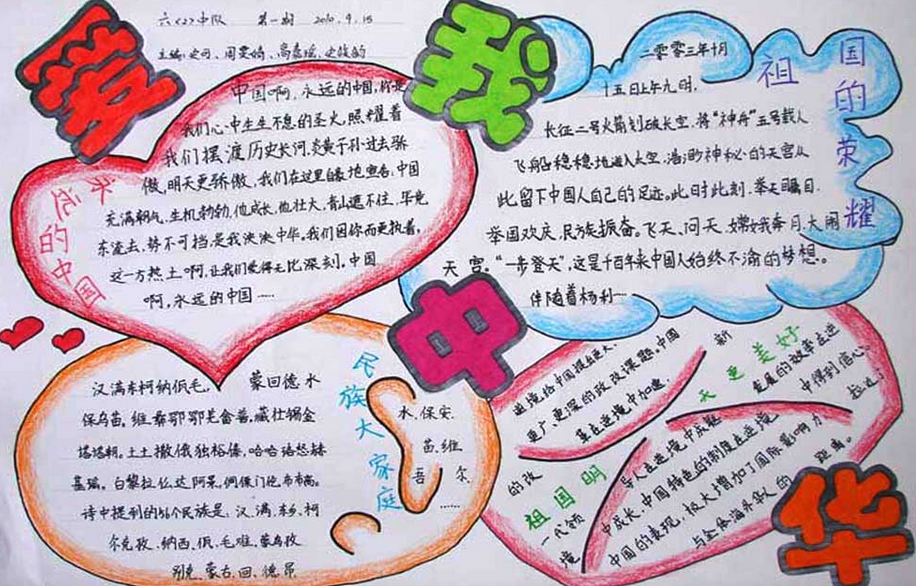 六〈2〉中队 第一期 2010.9.15
爱我中华
永远的中国
中国啊,永远的中国,你是
我们心中生生不息的圣火,照耀着
我们摆渡历史长河,炎黄子孙过去骄
傲,明天更骄傲,我们在这里自豪地宣告,中国
充满朝气,生机勃勃,他成长,他壮大,青山遮不住,毕竟
东流去,势不可挡是我泱泱中华。我们因你而更执着,
这一方热土啊,让我们爱得无比深刻,中国
啊,永远的中国……
祖国的荣耀
二零零三年十月
十五日上午九时,
长征二号火箭划破长空,将"神舟"五号载人
飞船稳稳地送入太空,浩渺神秘的天宫从
此留下中国人自己的足迹。此时此刻,举天瞩目,
举国欢庆,民族振奋。飞天、问天、嫦娥奔月、大闹
天宫。"一步登天",这是千百年来中国人始终不渝的梦想。
伴随着杨利…
民族大家庭
汉满东柯纳佤毛, 蒙回德水
保乌苗。维
藏仕锡金
塔塔朝。土土撒俄独裕傣,哈哈珞怒赫
基瑶。白黎拉仫达阿景,仡布
诗中提到的56个民族是:汉、满、东乡、柯
尔克孜、纳西、佤、毛难、蒙乌孜
别克、蒙古、回、德昂、
水、保安、
苗、维
吾 尔、
……
祖国明天更美好
新
一代领
的改
更广、更深的改革课题。中国
革在逆境中加速,
发展的故事在逆
中得到信心
中成长,中国特色的制度在逆境
中国的表现,极大增加了国际影响力
与全体海外华人的